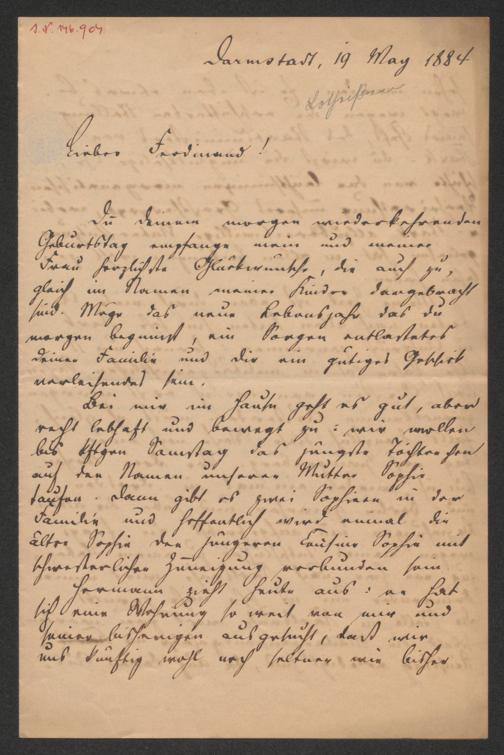 I.N. 146.904
Darmstadt, 19 May 1884
Lieber Ferdinand!
Zu deinem morgen wiederkehrenden
Geburtstag empfange mein und meiner
Frau herzlichste Glückwünsche, die auch zu,
gleich im Namen meiner Kinder dargebracht
sind. Möge das neue Lebensjahr das du
morgen beginnst, ein Sorgen entlastetes
deiner Familie und dir ein gütiges Geschick
verleihendes sein.
Bei mir im Hause geht es gut, aber
recht lebhaft und bewegt zu: wir wollen
bis Samstag das jüngste Töchterchen
auf den Namen unserer Mutter Sophie
taufen. Dann gibt es zwei Sophieen in der
Familie und hoffentlich wird einmal die
ältere Sophie der jüngeren Cousine Sophie mit
schwesterlicher Zuneigung verbunden sein.
Hermann zieht heute aus: er hat
sich eine Wohnung so weit von mir und
seiner bisherigen ausgesucht, daß wir
uns künftig wohl noch seltner wie bisher